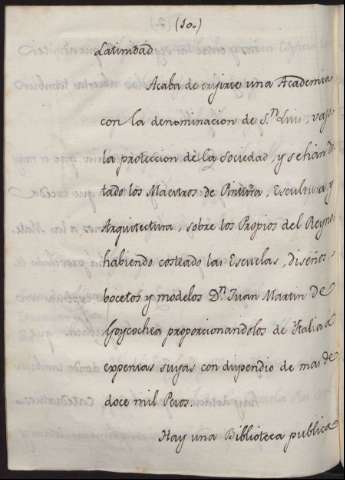 (10.)
Latinidad
Acaba de erijirse una Academia
con la denominacion de S.n Luis, vajo
la proteccion de la Sociedad, y se han do
tado los Maestros de Pintura, Escultura y
Arquitectura, sobre los Propios del Reyno
habiendo costeado las Escuelas, diseños
bocetos y modelos D.n Juan Martin de
Goycochea proporcionandolos de Italia a
expensas suyas con dispendio de mas de
doce mil Pesos.
Hay una Biblioteca publica